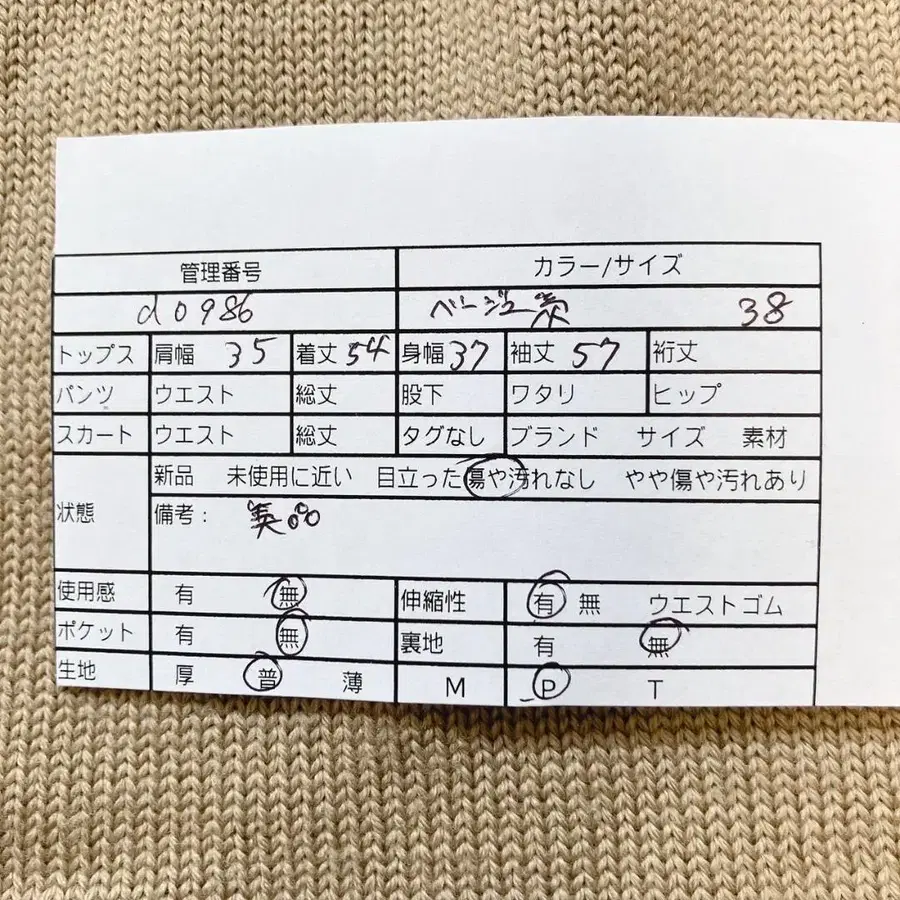 管理番号 カラー/サイズ
d0986 ベージュ系 38
トップス 肩幅 35 着丈 54 身幅 37 袖丈 57 裄丈
パンツ ウエスト 総丈 股下 ワタリ ヒップ
スカート ウエスト 総丈 タグなし ブランド サイズ 素材
新品 未使用に近い 目立った傷や汚れなし やや傷や汚れあり
状態 備考: 美品
使用感 有 無 伸縮性 有 無 ウエストゴム
ポケット 有 無 裏地 有 無
生地 厚 普 薄 M P T